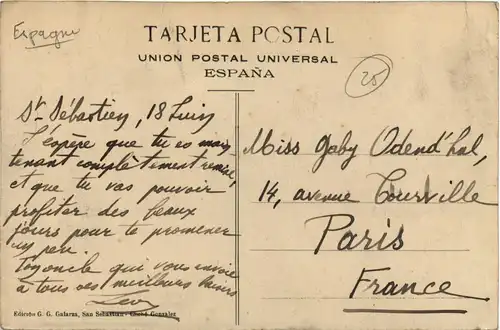 Espagne
TARJETA POSTAL
UNION POSTAL UNIVERSAL
ESPAÑA
25
St Sébastien, 18 Juin
J'espère que tu es main
tenant complètement remise,
et que tu vas pouvoir
profiter des beaux
jours pour te promener
un peu.
qui vous envoie
à tous ses meilleurs baisers
Miss Gaby Odend'hal,
14, avenue Tourville
Paris
France
Edición G. G. Galarza, San Sebastian - Cliché Gonzalez